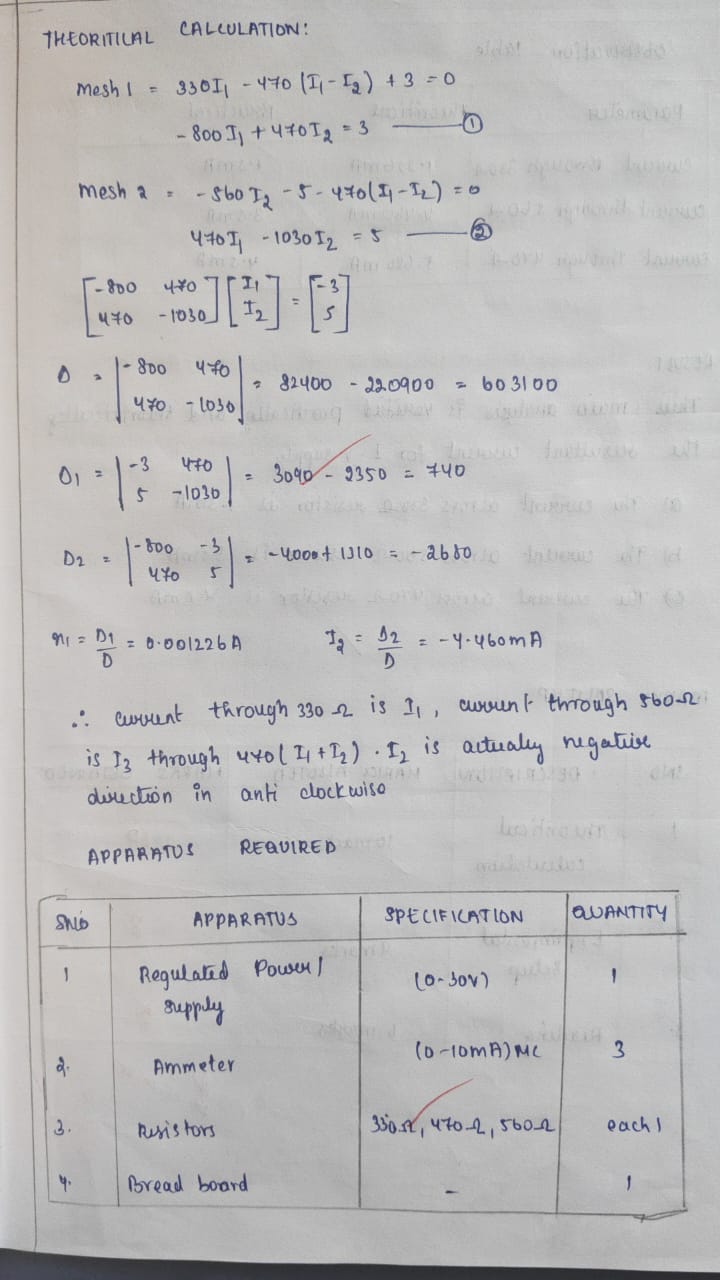 THEORITICAL CALCULATION:
Mesh 1 = 330I₁ - 470 (I₁-I₂) + 3 = 0
- 800 I₁ + 470 I₂ = 3 ①
Mesh 2 = - 560 I₂ - 5 - 470(I₁-I₂) = 0
470I₁ - 1030 I₂ = 5 ②
[-800 470] [I₁] = [-3]
[470 -1030] [I₂] [5]
D = |-800 470| = 82400 - 220900 = 603100
|470 -1030|
D₁ = |-3 470| = 3090 - 2350 = 740
|5 -1030|
D2 = |-800 -3| = -4000 + 1310 = -2680
|470 5|
x₁ = D₁/D = 0.001226A I₂ = D2/D = -4.460mA
∴ current through 330 Ω is I₁, current through 560Ω
is I₂ through 470(I₁+I₂). I₂ is actualy negative
direction in anti clockwise
APPARATUS REQUIRED
SNO APPARATUS SPECIFICATION QUANTITY
1 Regulated Power (0-30V) 1
supply
2. Ammeter (0-10mA)MC 3
3. Resistors 330Ω, 470Ω, 560Ω each 1
4. Bread board - 1